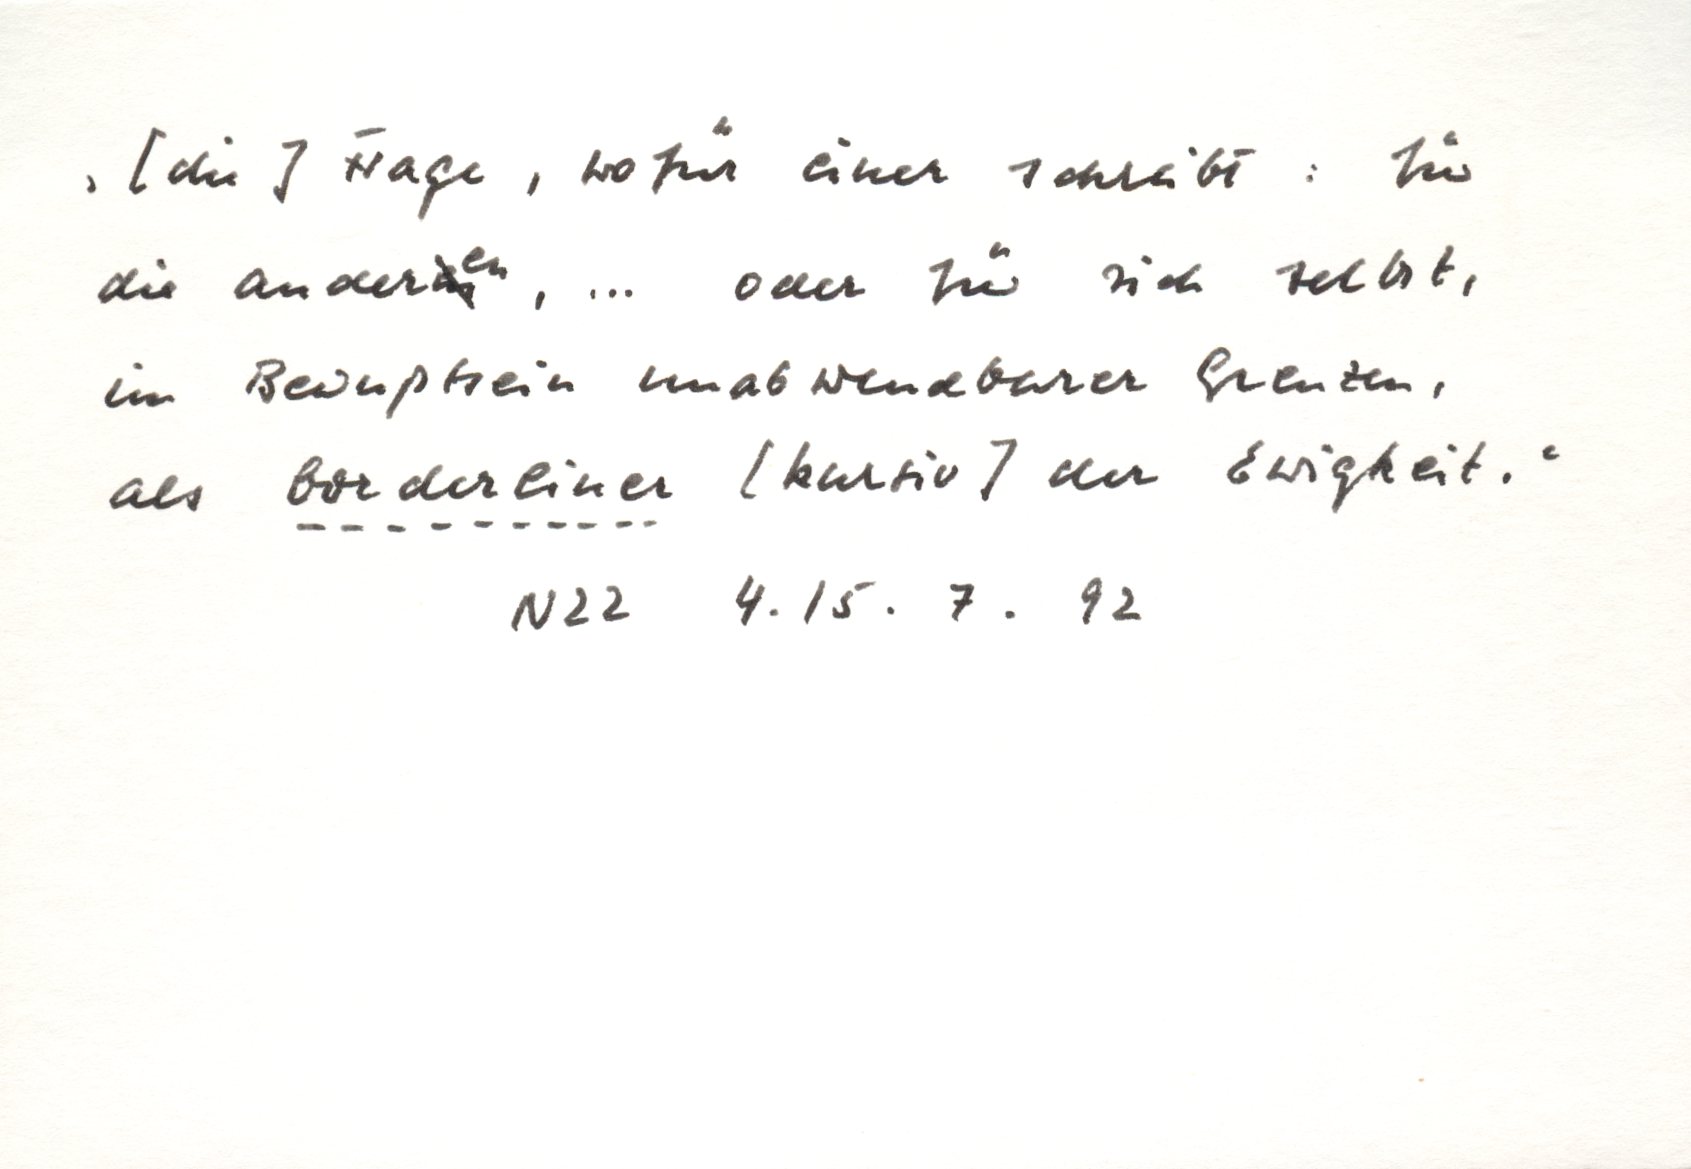 ‚[die] Frage, wofür einer schreibt: für
die anderen, ... oder für sich selbst,
im Bewußtsein unabwendbarer Grenzen,
als borderliner [kursiv] der Ewigkeit.‘
NZZ 4./5. 7. 92